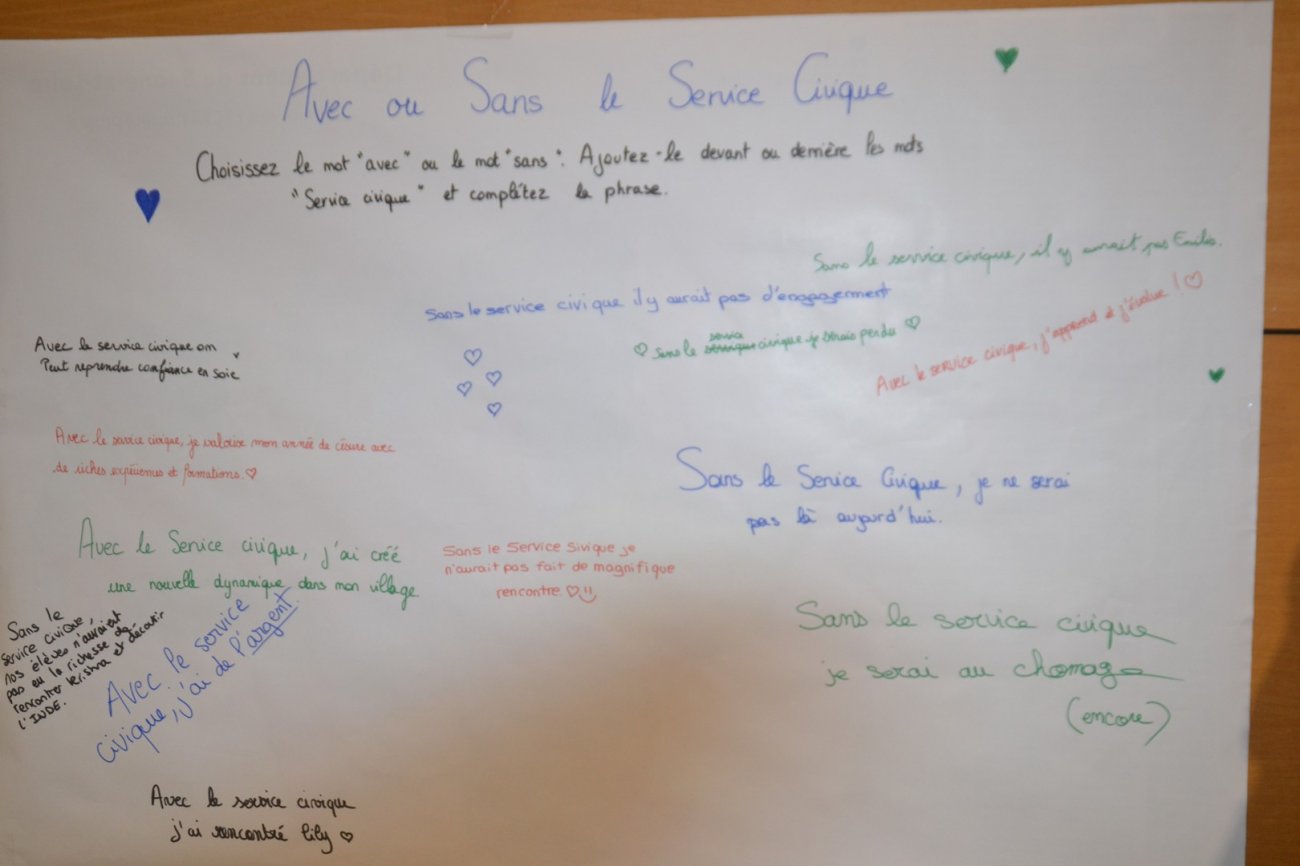 Avec ou Sans le Service Civique
Choisissez le mot "avec" ou le mot "sans". Ajoutez-le devant ou derrière les mots
"Service civique" et complétez la phrase.
Sans le service civique, il y aurait pas Emilie.
Sans le service civique il y aurait pas d'engagement
Sans le service civique je serais perdu
Avec le service civique, j'apprend et j'évolue !
Avec le service civique on
Peut reprendre confiance en soie
Avec le service civique, je valorise mon année de césure avec
de riches expériences et formations.
Sans le Service Civique, je ne serai
pas là aujourd'hui.
Avec le Service civique, j'ai créé
une nouvelle dynamique dans mon village
Sans le Service Sivique je
n'aurait pas fait de magnifique
rencontre.
Sans le
service civique,
nos élèves n'auraient
pas eu la richesse de
rencontrer et découvrir
l'INDE.
Avec le service
civique, j'ai de l'argent.
Sans le service civique
je serai au chomage
(encore)
Avec le service civique
j'ai rencontré lily